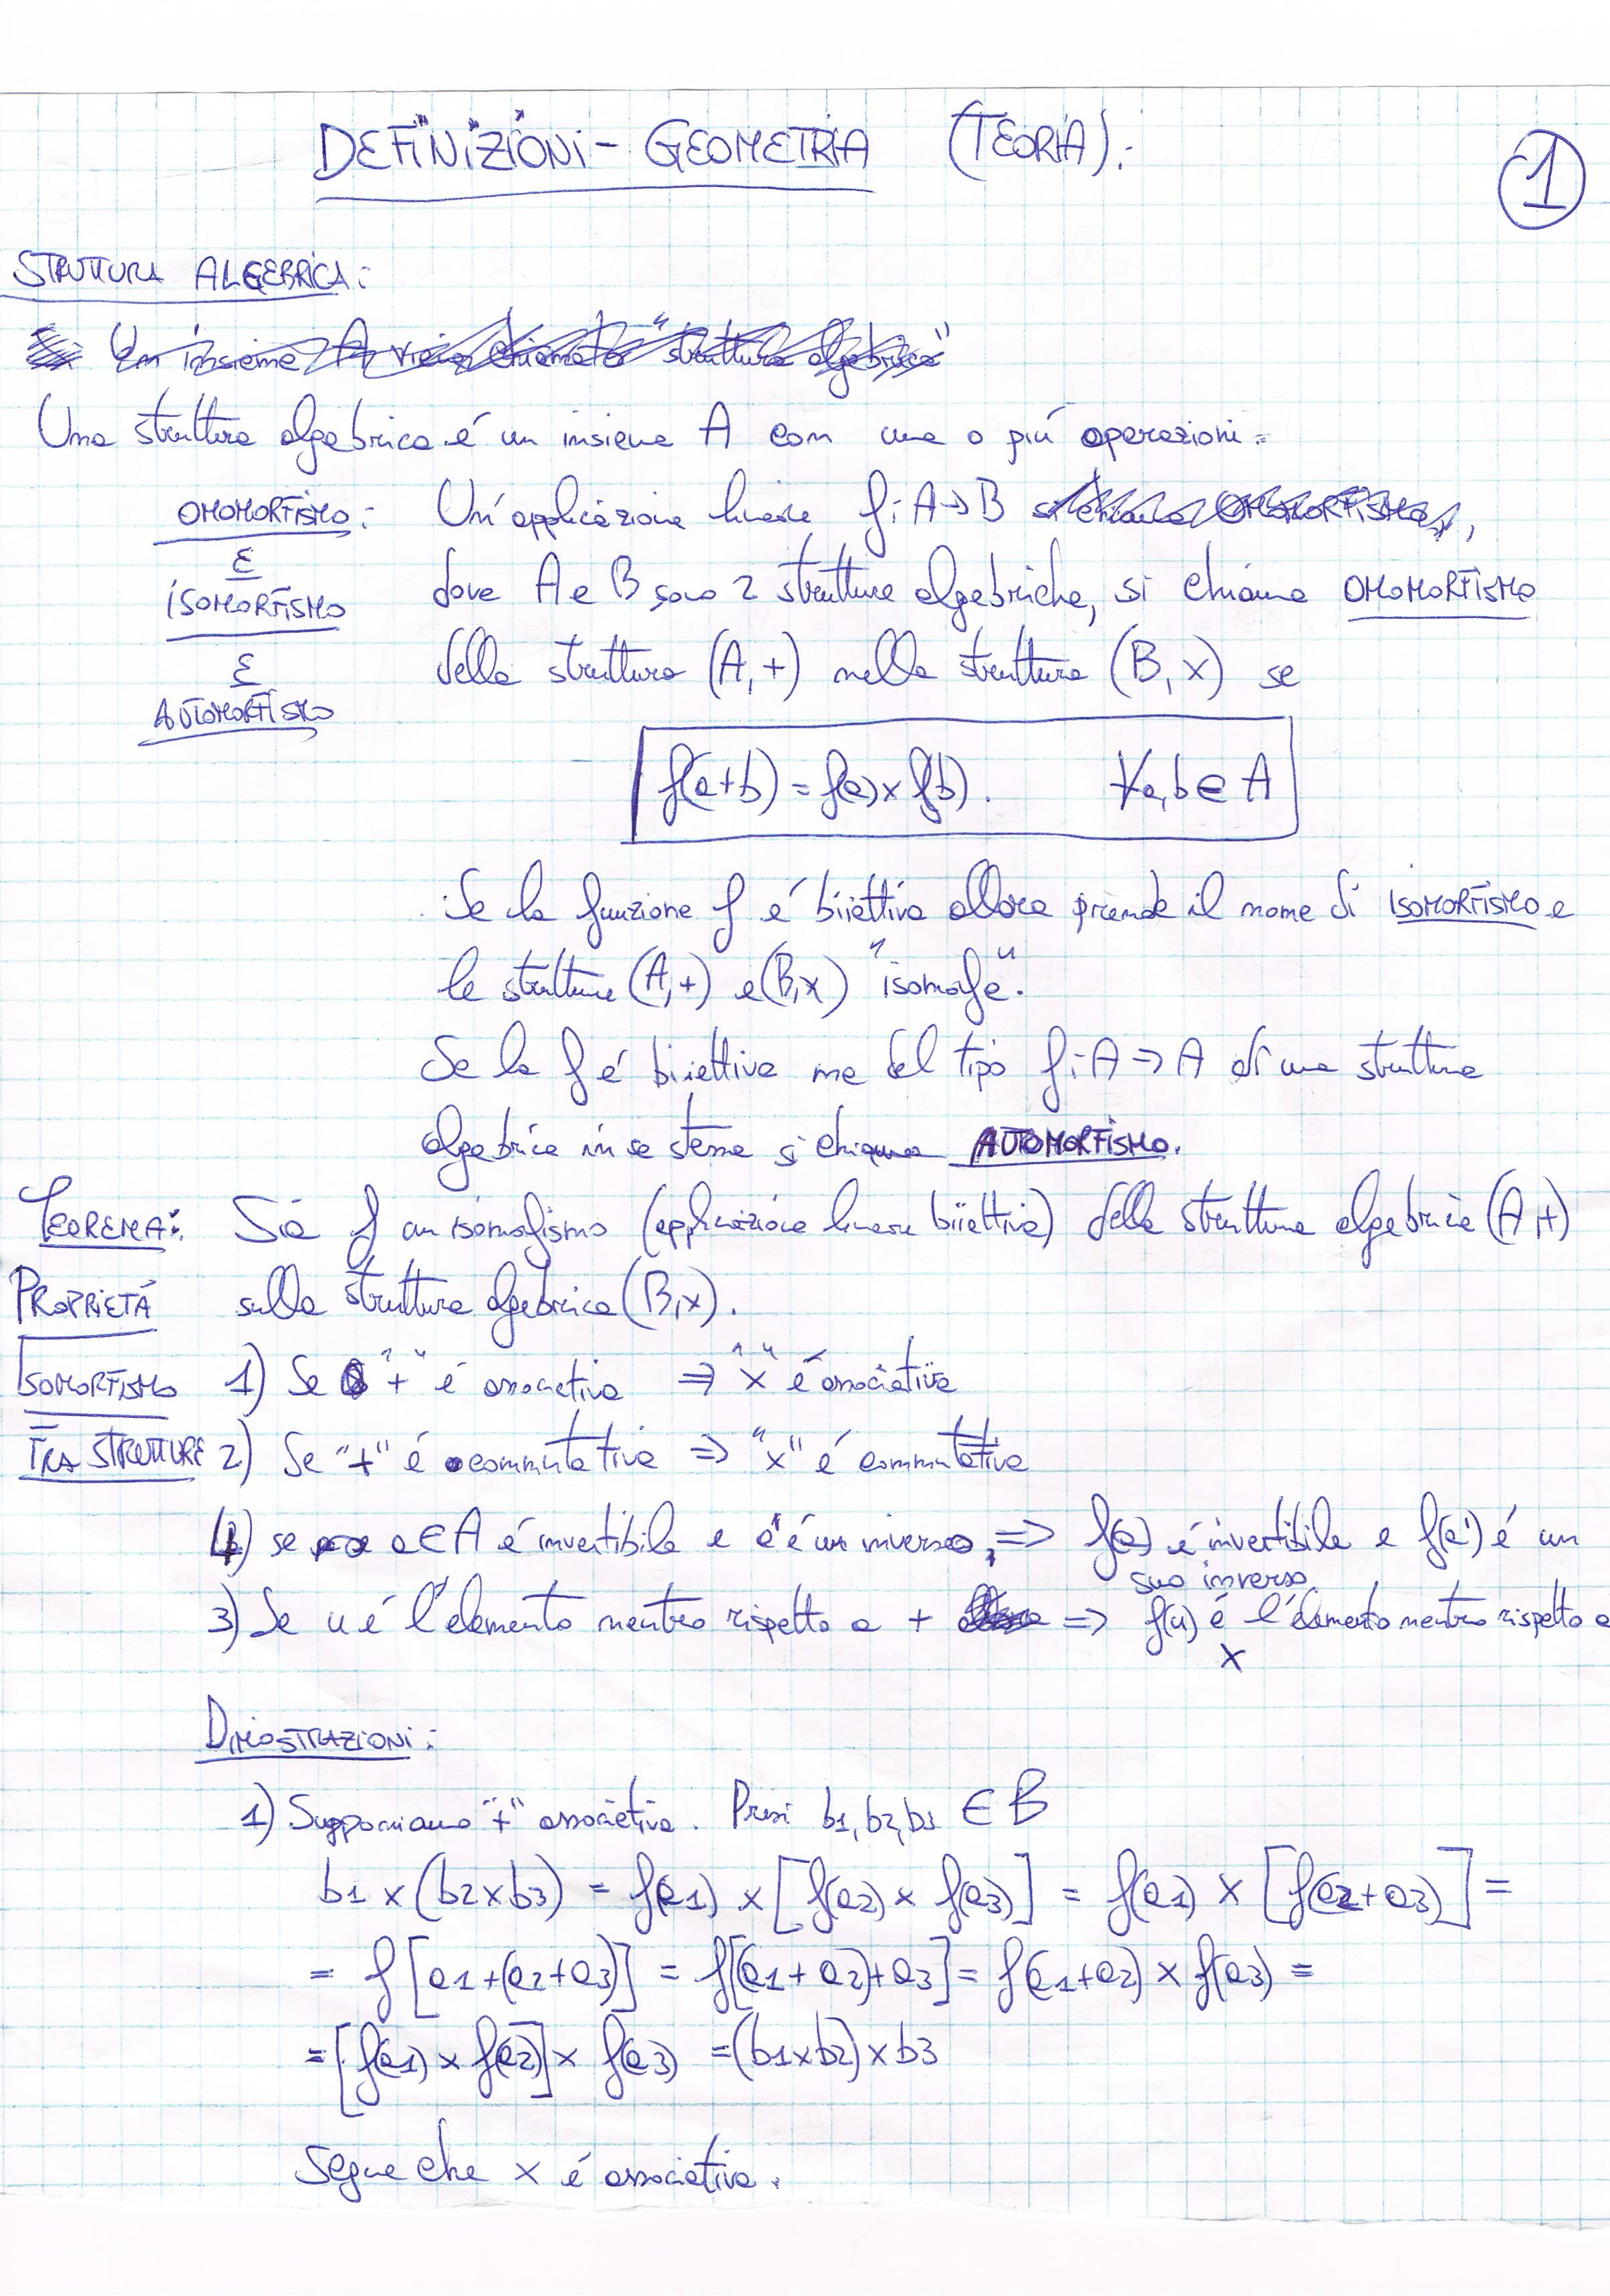 DEFINIZIONI - GEOMETRIA (TEORIA):
1
STRUTTURA ALGEBRICA:
Un insieme A viene chiamato "struttura algebrica"
Una struttura algebrica é un insieme A con una o piú operazioni.
OMOMORFISMO: Un'applicazione lineare f: A→B si chiama OMOMORFISMO,
E
ISOMORFISMO dove A e B sono 2 strutture algebriche, si chiama OMOMORFISMO
E della struttura (A,+) nella struttura (B,x) se
AUTOMORFISMO
f(a+b) = f(a) x f(b). ∀a,b ∈ A
Se la funzione f é biiettiva allora prende il nome di ISOMORFISMO e
le strutture (A,+) e (B,x) "isomofe".
Se la f é biiettiva ma del tipo f: A→A di una struttura
algebrica in se stessa si chiama AUTOMORFISMO.
TEOREMA: Sia f un isomofismo (applicazione lineare biiettiva) della struttura algebrica (A,+)
PROPRIETÁ sulla struttura algebrica (B,x).
ISOMORFISMO 1) Se "+" é associativa ⇒ "x" é associativa
TRA STRUTTURE 2) Se "+" é commutativa ⇒ "x" é commutativa
4) se a∈A é invertibile e a' é un inverso, ⇒ f(a) é invertibile e f(a') é un
suo inverso
3) Se u é l'elemento neutro rispetto a + ⇒ f(u) é l'elemento neutro rispetto a
x
DIMOSTRAZIONI:
1) Supponiamo "+" associativa. Presi b1, b2, b3 ∈ B
b1 x (b2 x b3) = f(a1) x [f(a2) x f(a3)] = f(a1) x [f(a2+a3)] =
= f[a1+(a2+a3)] = f[(a1+a2)+a3] = f(a1+a2) x f(a3) =
= [f(a1) x f(a2)] x f(a3) = (b1xb2) x b3
Segue che x é associativa.